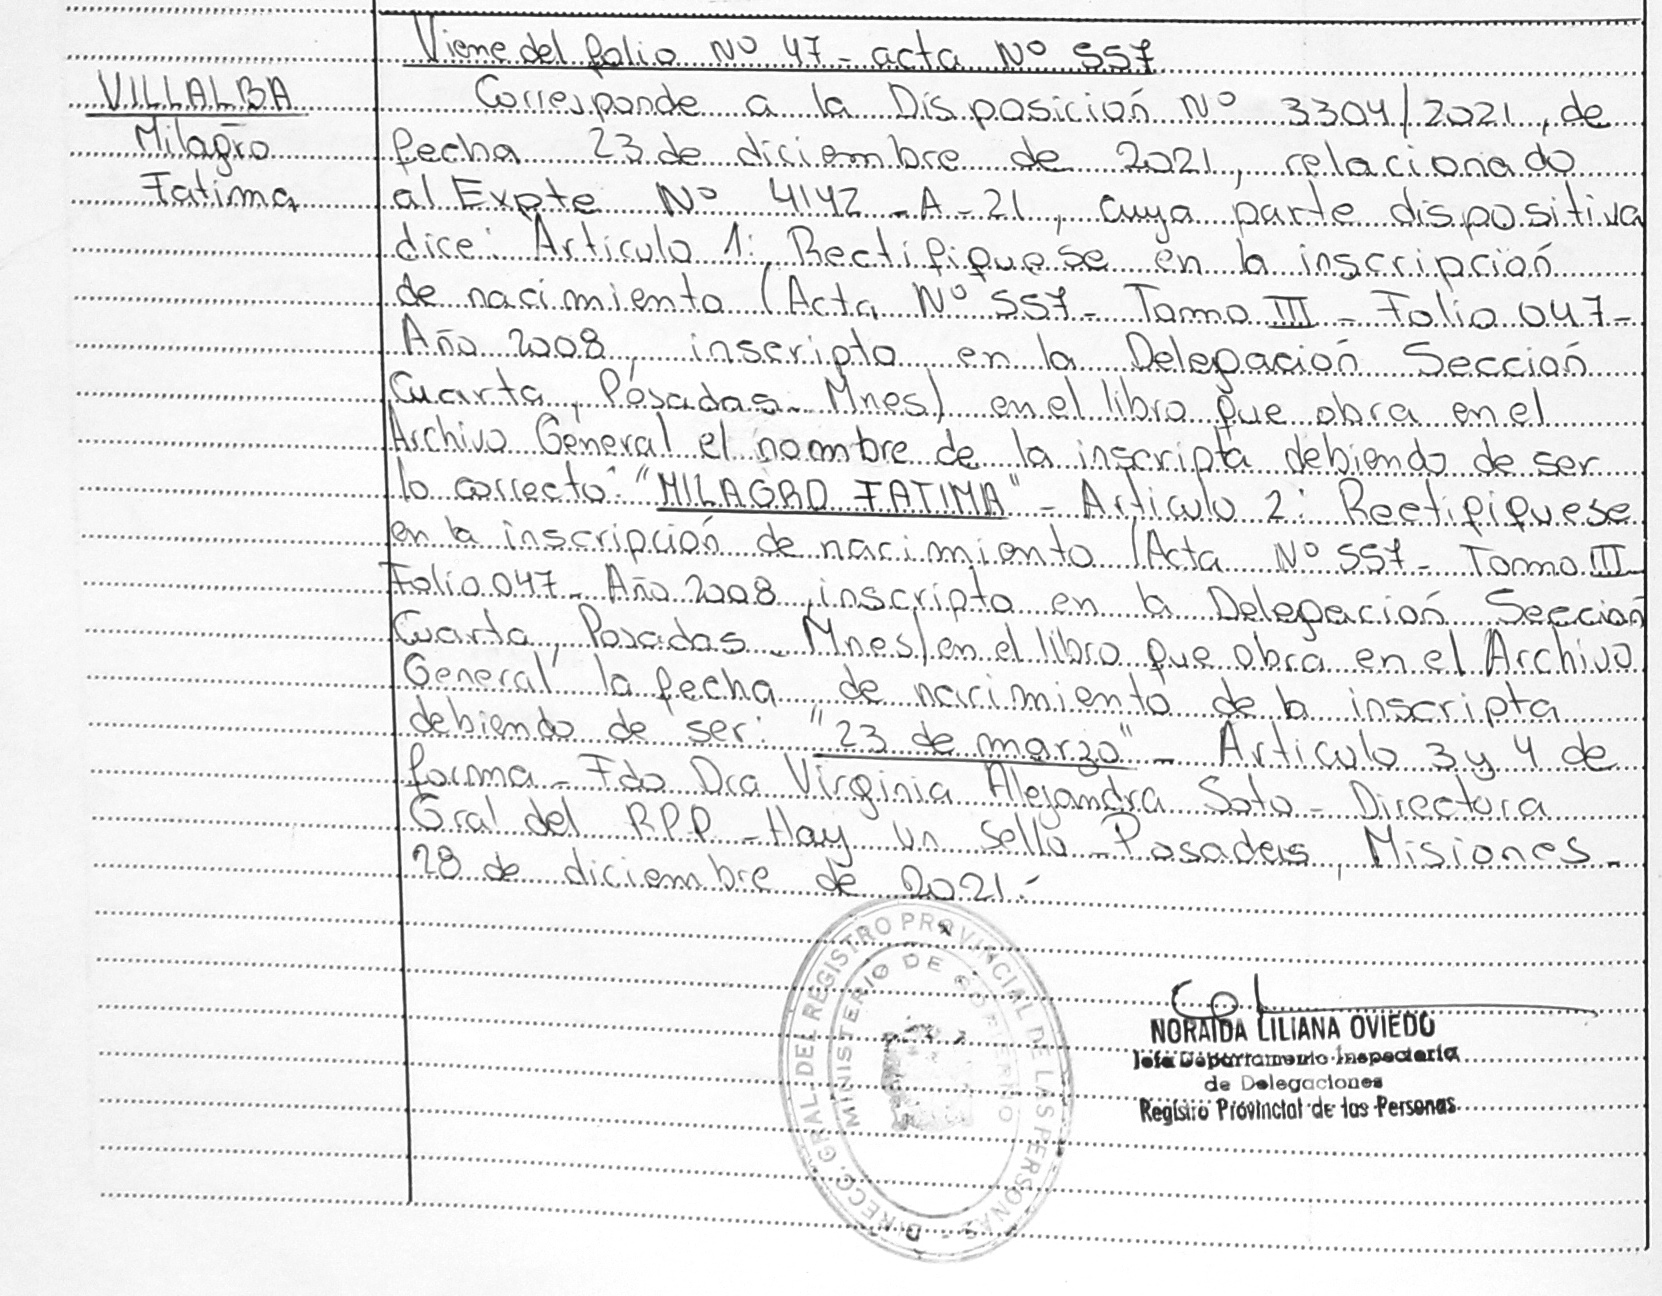 Viene del folio Nº 47 - acta Nº 557
VILLALBA
Milagro
Fatima
Corresponde a la Disposición Nº 3304/2021, de
fecha 23 de diciembre de 2021, relacionado
al Expte Nº 4142 - A - 21, cuya parte dispositiva
dice: Artículo 1: Rectifiquese en la inscripción
de nacimiento (Acta Nº 557 - Tomo III - Folio 047 -
Año 2008, inscripto en la Delegación Sección
Cuarta, Posadas - Mnes) en el libro que obra en el
Archivo General el nombre de la inscripta debiendo de ser
lo correcto: "MILAGRO FATIMA" - Articulo 2: Rectifiquese
en la inscripción de nacimiento (Acta Nº 557 - Tomo III
Folio 047 - Año 2008, inscripto en la Delegación Sección
Cuarta, Posadas - Mnes) en el libro que obra en el Archivo
General la fecha de nacimiento de la inscripta
debiendo de ser: "23 de marzo" - Articulo 3 y 4 de
forma - Fdo Dra Virginia Alejandra Soto - Directora
Gral del RPP - Hay un sello - Posadas, Misiones -
28 de diciembre de 2021.-
DIRECC. GRAL. DEL REGISTRO PROVINCIAL DE LAS PERSONAS -
MINISTERIO DE GOBIERNO
NORAIDA LILIANA OVIEDO
Jefa Departamento Inspectoria
de Delegaciones
Registro Provincial de las Personas